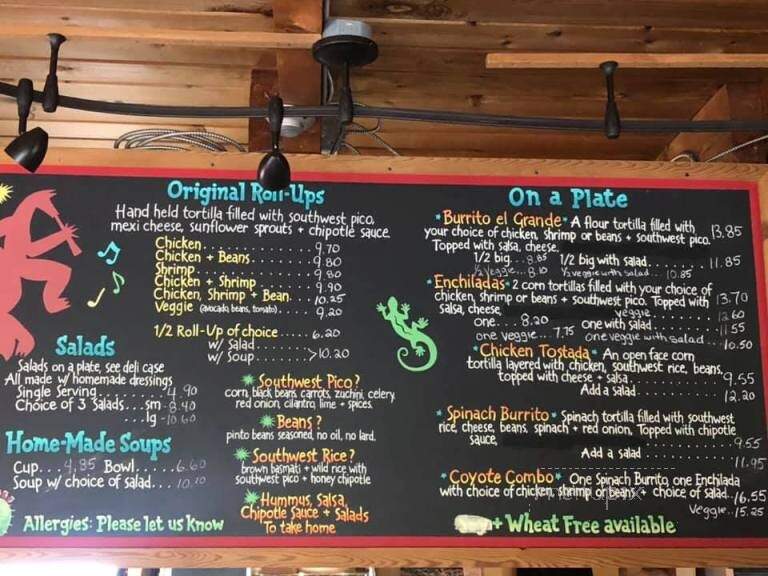 Original Roll-Ups
Hand held tortilla filled with southwest pico,
mexi cheese, sunflower sprouts + chipotle sauce.
Chicken.................. 9.70
Chicken + Beans......... 9.80
Shrimp................... 9.80
Chicken + Shrimp........ 9.90
Chicken, Shrimp + Bean.... 10.25
Veggie (avocado, beans, tomato)....... 9.20
1/2 Roll-Up of choice....... 6.20
w/ Salad.......
w/ Soup.......>10.20
Salads
Salads on a plate, see deli case
All made w/ homemade dressings
Single Serving.......... 4.90
Choice of 3 Salads...sm-8.40
...lg-10.60
Home-Made Soups
Cup...4.85 Bowl....6.60
Soup w/ choice of salad....10.10
Allergies: Please let us know
* Southwest Pico?
corn, black beans, carrots, zuchini, celery,
red onion, cilantro, lime + spices.
* Beans?
pinto beans seasoned, no oil, no lard.
* Southwest Rice?
brown basmati + wild rice with
southwest pico + honey chipotle
* Hummus, Salsa,
Chipotle Sauce + Salads
To take home
On a Plate
* Burrito el Grande * A flour tortilla filled with
your choice of chicken, shrimp or beans + southwest pico. 13.85
Topped with salsa, cheese,
1/2 big...8.85 1/2 big with salad.......... 11.85
1/2 Veggie...8.10 1/2 veggie with salad... 10.85
* Enchiladas * 2 corn tortillas filled with your choice of
chicken, shrimp or beans + southwest pico. Topped with 13.70
salsa, cheese, veggie.......... 12.60
one... 8.20 one with salad.......... 11.55
one veggie... 7.75 one veggie with salad... 10.50
* Chicken Tostada * An open face corn
tortilla layered with chicken, southwest rice, beans,
topped with cheese + salsa.......... 9.55
Add a salad.......... 12.20
* Spinach Burrito * Spinach tortilla filled with southwest
rice, cheese, beans, spinach + red onion. Topped with chipotle
sauce, .......... 9.55
Add a salad.......... 11.95
* Coyote Combo * One Spinach Burrito, one Enchilada
with choice of chicken, shrimp or beans + choice of salad. 16.55
Veggie..15.25
+ Wheat Free available